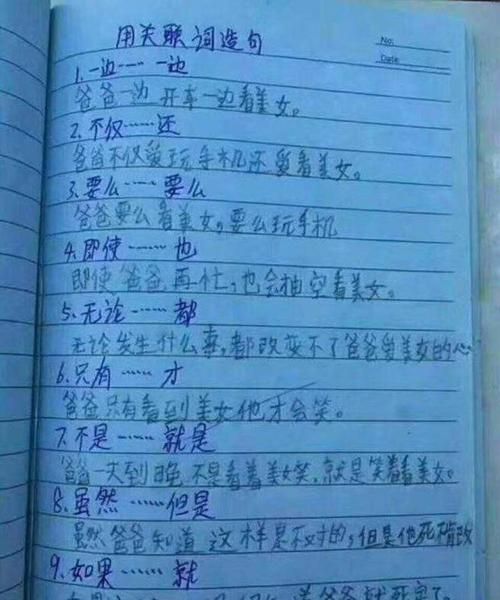 用关联词造句
No:
Date
1.一边……一边
爸爸一边开车一边看美女。
2.不仅……还
爸爸不仅爱玩手机还爱看美女。
3.要么……要么
爸爸要么看美女,要么玩手机
4.即使……也
即使爸爸再忙,也会抽空看美女。
5.无论……都
无论发生什么事,都改变不了爸爸爱美女的心
6.只有……才
爸爸只有看到美女他才会笑。
7.不是……就是
爸爸一天到晚,不是看着美女笑,就是笑着看美女。
8.虽然……但是
虽然爸爸知道这样是不对的,但是他死不肯改
9.如果……就
爸爸就死定了。